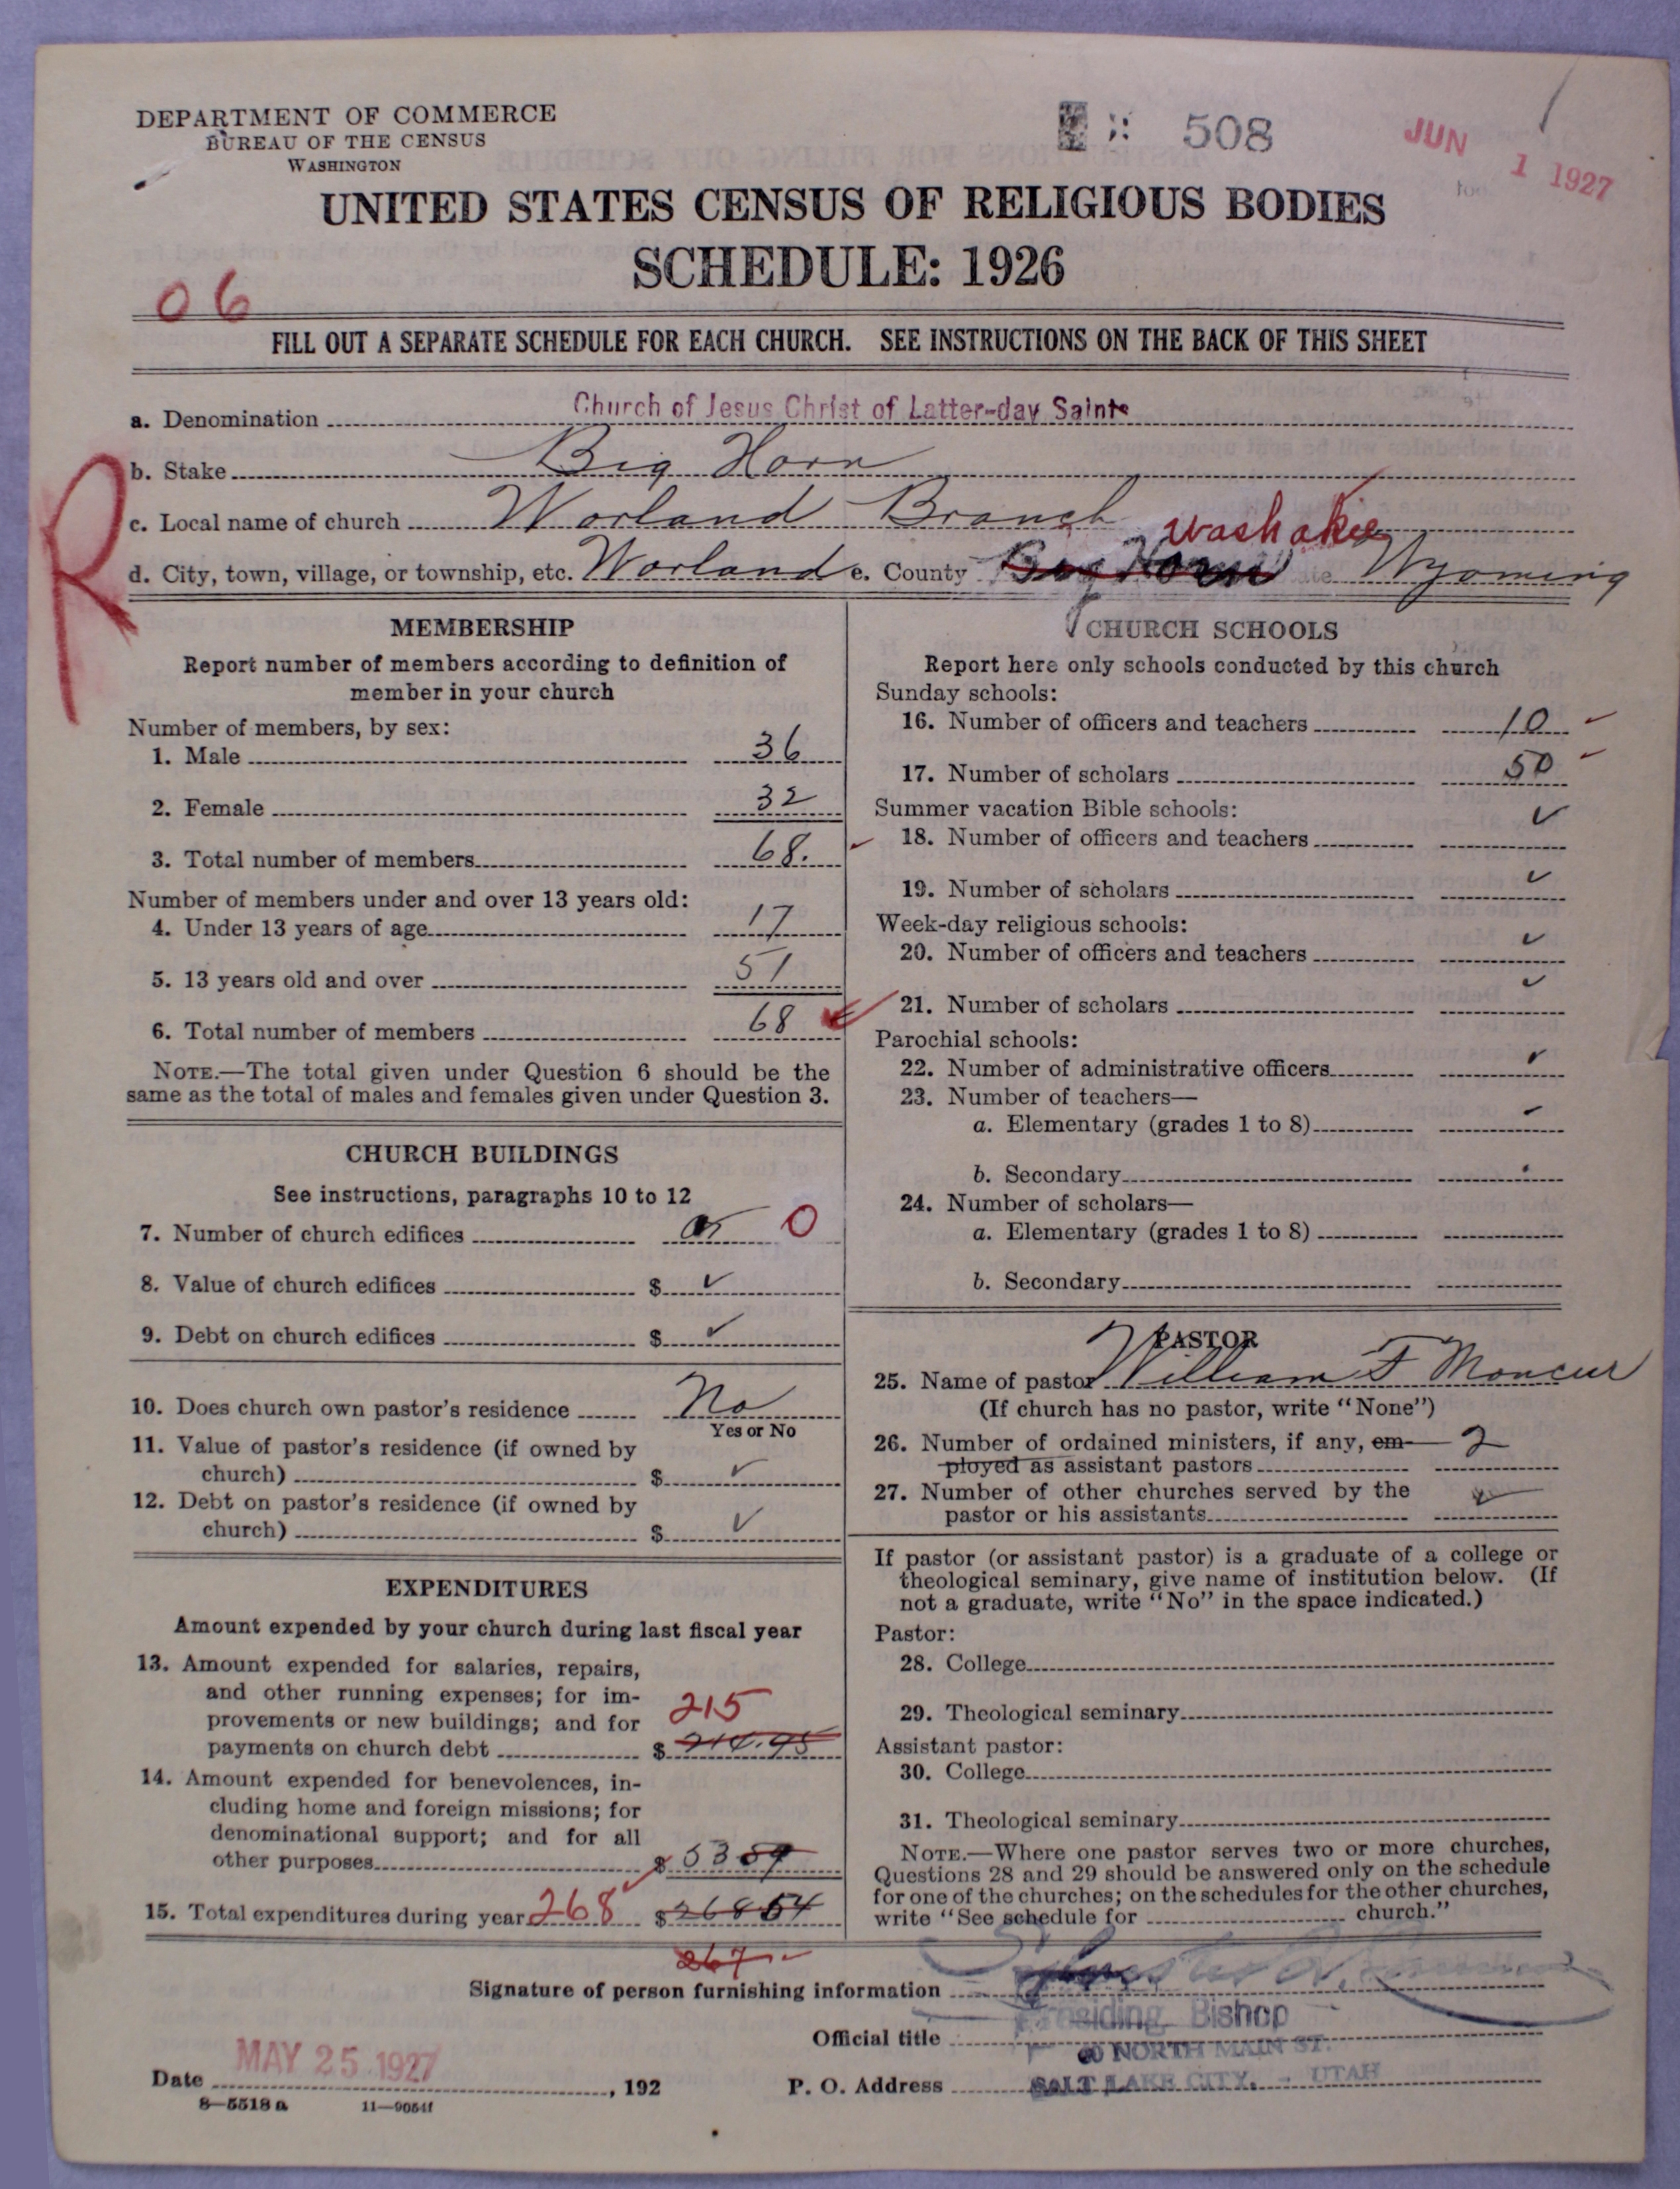 DEPARTMENT OF COMMERCE
BUREAU OF THE CENSUS
WASHINGTON
508
JUN 1 1927
UNITED STATES CENSUS OF RELIGIOUS BODIES
SCHEDULE: 1926
06
FILL OUT A SEPARATE SCHEDULE FOR EACH CHURCH. SEE INSTRUCTIONS ON THE BACK OF THIS SHEET
R
a. Denomination Church of Jesus Christ of Latter-day Saints
b. Stake Big Horn
c. Local name of church Worland Branch
Washakie
d. City, town, village, or township, etc. Worland e. County Big Horn Wyoming
MEMBERSHIP
Report number of members according to definition of
member in your church
Number of members, by sex:
1. Male 36
2. Female 32
3. Total number of members 68.
Number of members under and over 13 years old:
4. Under 13 years of age 17
5. 13 years old and over 51
6. Total number of members 68
NOTE.—The total given under Question 6 should be the
same as the total of males and females given under Question 3.
CHURCH BUILDINGS
See instructions, paragraphs 10 to 12
7. Number of church edifices 0
8. Value of church edifices $ ✓
9. Debt on church edifices $ ✓
10. Does church own pastor's residence No
Yes or No
11. Value of pastor's residence (if owned by
church) $ ✓
12. Debt on pastor's residence (if owned by
church) $ ✓
EXPENDITURES
Amount expended by your church during last fiscal year
13. Amount expended for salaries, repairs,
and other running expenses; for im-
provements or new buildings; and for 215
payments on church debt $ 214.95
14. Amount expended for benevolences, in-
cluding home and foreign missions; for
denominational support; and for all
other purposes $ 53 59
15. Total expenditures during year 268 $ 268 54
267
CHURCH SCHOOLS
Report here only schools conducted by this church
Sunday schools:
16. Number of officers and teachers 10
17. Number of scholars 50
Summer vacation Bible schools:
18. Number of officers and teachers ✓
19. Number of scholars ✓
Week-day religious schools:
20. Number of officers and teachers ✓
21. Number of scholars ✓
Parochial schools:
22. Number of administrative officers ✓
23. Number of teachers—
a. Elementary (grades 1 to 8)
b. Secondary
24. Number of scholars—
a. Elementary (grades 1 to 8)
b. Secondary
PASTOR
25. Name of pastor William F Moncur
(If church has no pastor, write "None")
26. Number of ordained ministers, if any, em- 2
ployed as assistant pastors
27. Number of other churches served by the
pastor or his assistants ✓
If pastor (or assistant pastor) is a graduate of a college or
theological seminary, give name of institution below. (If
not a graduate, write "No" in the space indicated.)
Pastor:
28. College
29. Theological seminary
Assistant pastor:
30. College
31. Theological seminary
NOTE.—Where one pastor serves two or more churches,
Questions 28 and 29 should be answered only on the schedule
for one of the churches; on the schedules for the other churches,
write "See schedule for church."
Signature of person furnishing information
Official title Presiding Bishop
NORTH MAIN ST.
Date MAY 25 1927, 192
P. O. Address SALT LAKE CITY, - UTAH
8—5518 a 11—9054f